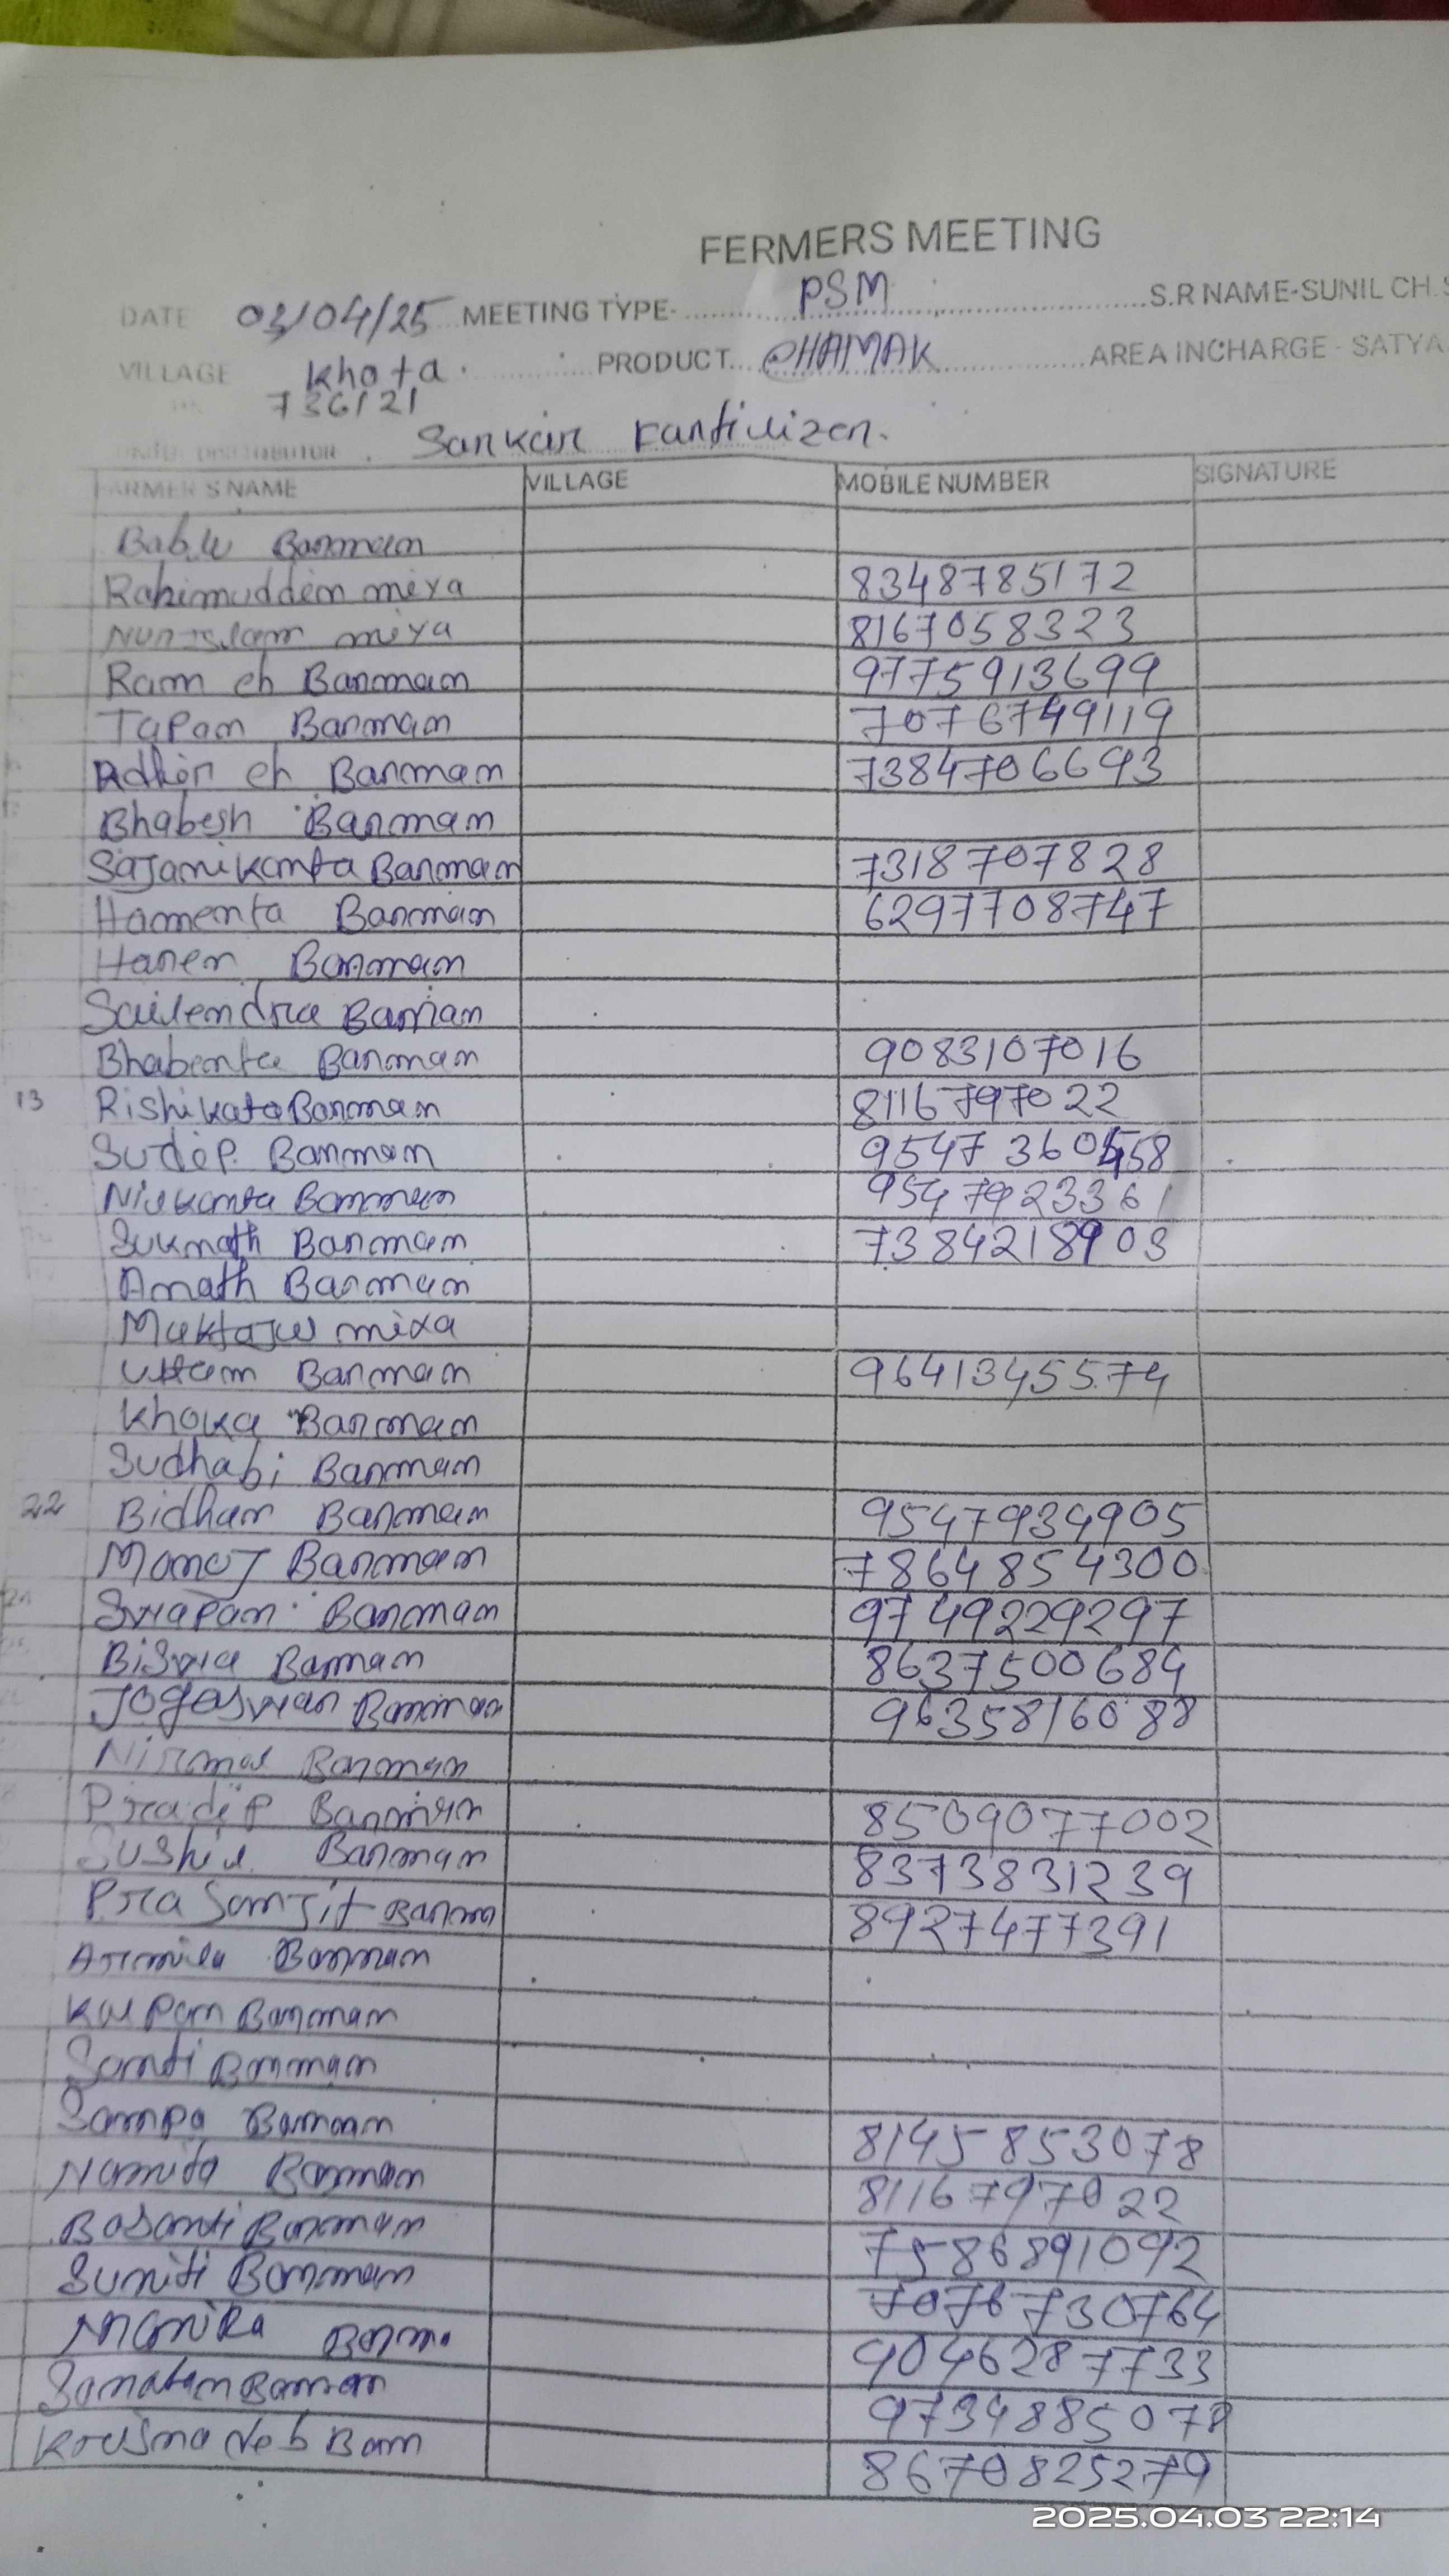 FERMERS MEETING
DATE 03/04/25 MEETING TYPE- PSM S.R NAME-SUNIL CH.S
VILLAGE Khota PRODUCT DHAMAK AREA INCHARGE - SATYA
736121
DISTRIBUTOR Sarkar
FARMER'S NAME VILLAGE MOBILE NUMBER SIGNATURE
Bablu Barman
Rahimuddin miya 8348785172
Nur islam miya 8167058323
Ram ch Barman 9775913699
Tapan Barman 7076749119
Adhir ch Barman 7384706693
Bhabesh Barman
Sajanikanta Barman 7318707828
Hamenta Barman 6297708747
Haren Barman
Sailendra Barman
Bhabenta Barman 9083107016
13 Rishikata Barman 8116797022
Sudip Barman
Nilkanta Barman 9547923361
Suknath Barman 7384218903
Anath Barman
Muktajul miya
Uttam Barman 9641345574
Khoka Barman
Sudhabi Barman
22 Bidhan Barman 9547934905
Manoj Barman 7864854300
Swapan Barman 9749229297
Biswa Barman 8637500684
Jogeswar Barman 9635816088
Nirmal Barman
Pradip Barman 8509077002
Sushil Barman 8373831239
Prasanjit Barman 8927477391
Armila Barman
Kalpan Barman
Santi Barman
Sampa Barman 8145853078
Namita Barman 8116797022
Basanti Barman 7586891092
Suniti Barman 7076730764
Manika Barma 9046287733
Sanatan Barman 9734885078
Krisna deb Barm 8670825279
2025.04.03 22:14